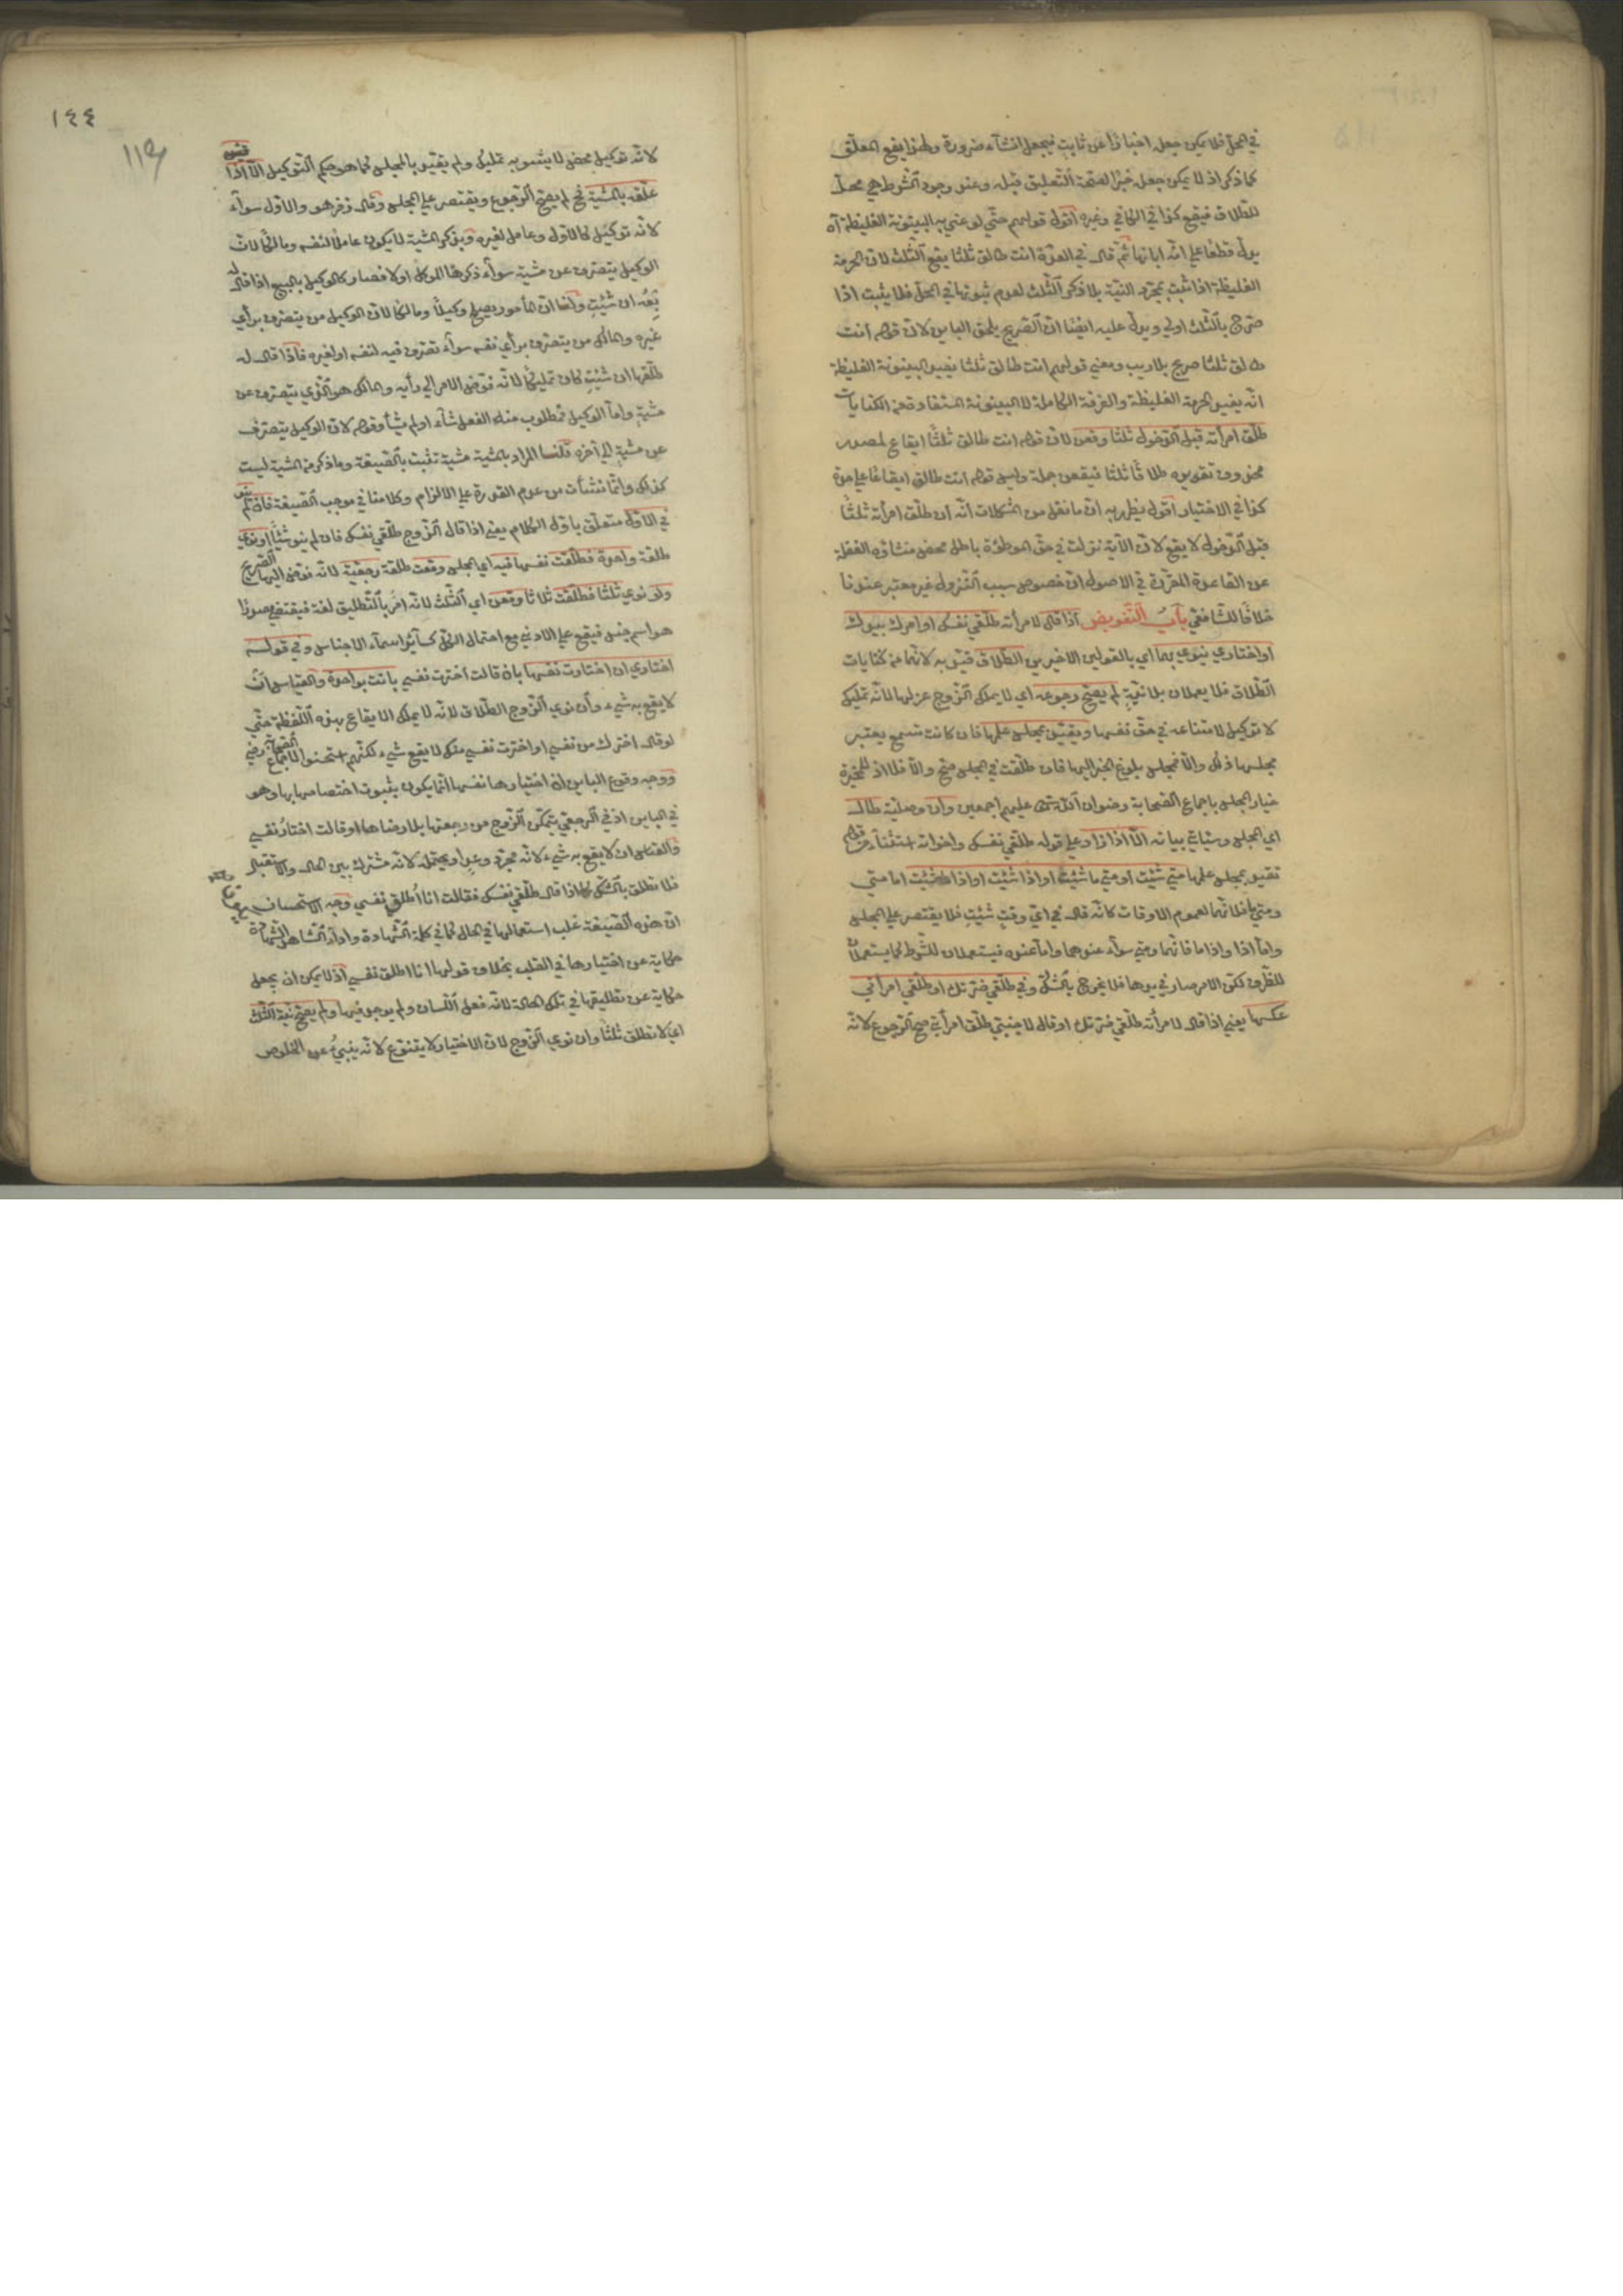 في المحل فلا يمكن جعله اخبارًا عن ثابت فيجعل انشآء ضرورة ولهذا يقع المعلق
كما ذكر اذ لا يمكن جعله خبرًا لصحة التعليق قبله وعند وجود الشرط هي محل
للطلاق فيقع كذا في الكافي وغيره أقول قولهم حتى لو عنى به البينونة الغليظة آه
يدل قطعًا على انه ابانها ثم قال في العدة انت طالق ثلثا يقع الثلث لان الحرمة
الغليظة اذا ثبت بمجرد النية بلا ذكر الثلث لعدم ثبوتها في المحل فلا يثبت اذا
صرح بالثلث اولى ويدل عليه ايضا ان الصريح يلحق الباين لان قوله أنت
طالق ثلثا صريح بلا ريب ومعنى قولهم انت طالق ثلثا يفيد البينونة الغليظة
انه يفيد الحرمة الغليظة والفرقة الكاملة لا البينونة المستفادة من الكنايات
طلق امرأته قبل الدخول ثلثا وقعن لان قوله انت طالق ثلثًا ايقاع لمصدر
محذوف تقديره طلاقًا ثلثا فيقعن جملة وليس قوله أنت طالق ايقاعًا على حدة
كذا في الاختيار أقول يظهر به ان ما نقل من المشكلات انه ان طلق امرأته ثلثًا
قبل الدخول لا يقع لان الآية نزلت في حق الموطؤة باطل محض منشاؤه الغفلة
عن القاعدة المقررة في الاصول ان خصوص سبب النزول غير معتبر عندنا
خلافًا للشافعي باب التفويض اذا قال لامرأته طلقي نفسك او امرك بيدك
او اختاري ينوي بهما اي بالقولين الاخيرين الطلاق قيد به لانهما من كنايات
الطلاق فلا يعملان بلا نية لم يصح رجوعه اي لا يملك الزوج عزلها لانه تمليك
لا توكيل لامتناعه في حق نفسها ويقيد بمجلس علمها فان كانت تسمع يعتبر
مجلسها ذلك والا فمجلس بلوغ الخبر اليها فان طلقت في المجلس صح والا فلا اذ للمخيرة
خيار المجلس باجماع الصحابة رضوان الله تعالى عليهم اجمعين وان وصلية طال
اي المجلس وسيأتي بيانه الا اذا زاد على قوله طلقي نفسك واخواته استثناء من قوله
تقيد بمجلس علمها متى شئت أو متى ما شئت او اذا شئت او اذا ما شئت اما متى
ومتى ما فلانهما لعموم الاوقات كانه قال في اي وقت شئت فلا يقتصر على المجلس
واما اذا واذا ما فانهما ومتى سوآء عندهما واما عنده فيستعملان للشرط كما يستعملان
للظرف لكن الامر صار في يدها فلا يخرج بالشك وفي طلقي ضرتك او طلقي امرأتي
عكسها يعني اذا قال لامرأته طلقي ضرتك او قال لاجنبي طلق امرأتي صح الرجوع لانه
١٤٤
لانه توكيل محض لا يشوبه تمليك ولم يقيد بالمجلس كما هو حكم التوكيل الا اذا
علقه بالمشية فح لم يصح الرجوع ويقتصر على المجلس وقال زفر هو والاول سوآء
لانه توكيل كالاول وعامل لغيره وبذكر المشية لا يكون عاملا لنفسه ومالكًا لان
الوكيل يتصرف عن مشية سوآء ذكرها الموكل او لا فصار كالوكيل بالبيع اذا قال له
بعه ان شئت ولنا ان المأمور يصلح وكيلًا ومالكا لان الوكيل من يتصرف برأي
غيره والمالك من يتصرف برأي نفسه سوآء تصرف فيه لنفسه او لغيره فاذا قال له
طلقها ان شئت كان تمليكا لانه فوض الامر الى رأيه والمالك هو الذي يتصرف عن
مشية واما الوكيل فمطلوب منه الفعل شآء او لم يشأ وقوله لان الوكيل يتصرف
عن مشية الى آخره قلنا المراد بالمشية مشية تثبت بالصيغة وما ذكر من المشية ليست
كذلك وانما نشأت من عدم القدرة على الالزام وكلامنا في موجب الصيغة فان لم
في الاول متعلق باول الكلام يعني اذا قال الزوج طلقي نفسك فان لم ينو شيئًا او نوى
طلقة واحدة فطلقت نفسها فيه اي المجلس وقعت طلقة رجعية لانه فوض اليها الصريح
ولو نوى ثلثا فطلقت ثلاثا وقعن اي الثلث لانه امر بالتطليق لغة فيقتضي مصدرًا
هو اسم جنس فيقع على الادنى مع احتمال الكل كسائر اسمآء الاجناس وفي قوله
اختاري ان اختارت نفسها بان قالت اخترت نفسي بانت بواحدة والقياس ان
لا يقع به شيء وان نوى الزوج الطلاق لانه لا يملك الايقاع بهذه اللفظة حتى
لو قال اخترك من نفسي او اخترت نفسي منك لا يقع شيء لكنهم استحسنوا لاجماع الصحابة رضي
ووجه وقوع الباين ان اختيارها نفسها انما يكون بثبوت اختصاصها بها وهو
في الباين اذ في الرجعي يتمكن الزوج من رجعتها بلا رضاها او قالت اختار نفسي
والقياس ان لا يقع به شيء لانه مجرد وعد او يحتمله لانه مشترك بين الحال والاستقبال
فلا تطلق بالشك كما اذا قال طلقي نفسك فقالت انا أطلق نفسي وجه الاستحسان
ان هذه الصيغة غلب استعمالها في الحال كما في كلمة الشهادة واداء الشاهد الشهادة
حكاية عن اختيارها في القلب بخلاف قولها انا اطلق نفسي اذ لا يمكن ان يجعل
حكاية عن تطليقها في تلك الحالة لانه فعل اللسان ولم يوجد فيها ولم يصح نية الثلث
اي لا تطلق ثلثًا وان نوى الزوج لان الاختيار لا يتنوع لانه ينبئ عن الخلوص